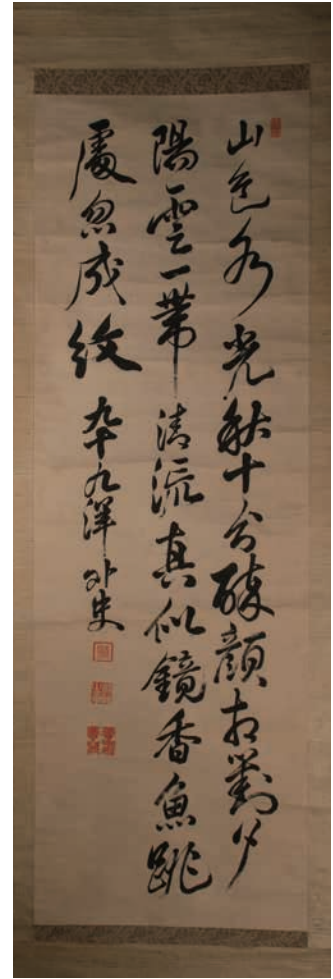 山色水光秋十分酔顔相對夕
陽雲一帶清流真似鏡香魚跳
處忽成紋 九十九洋外史